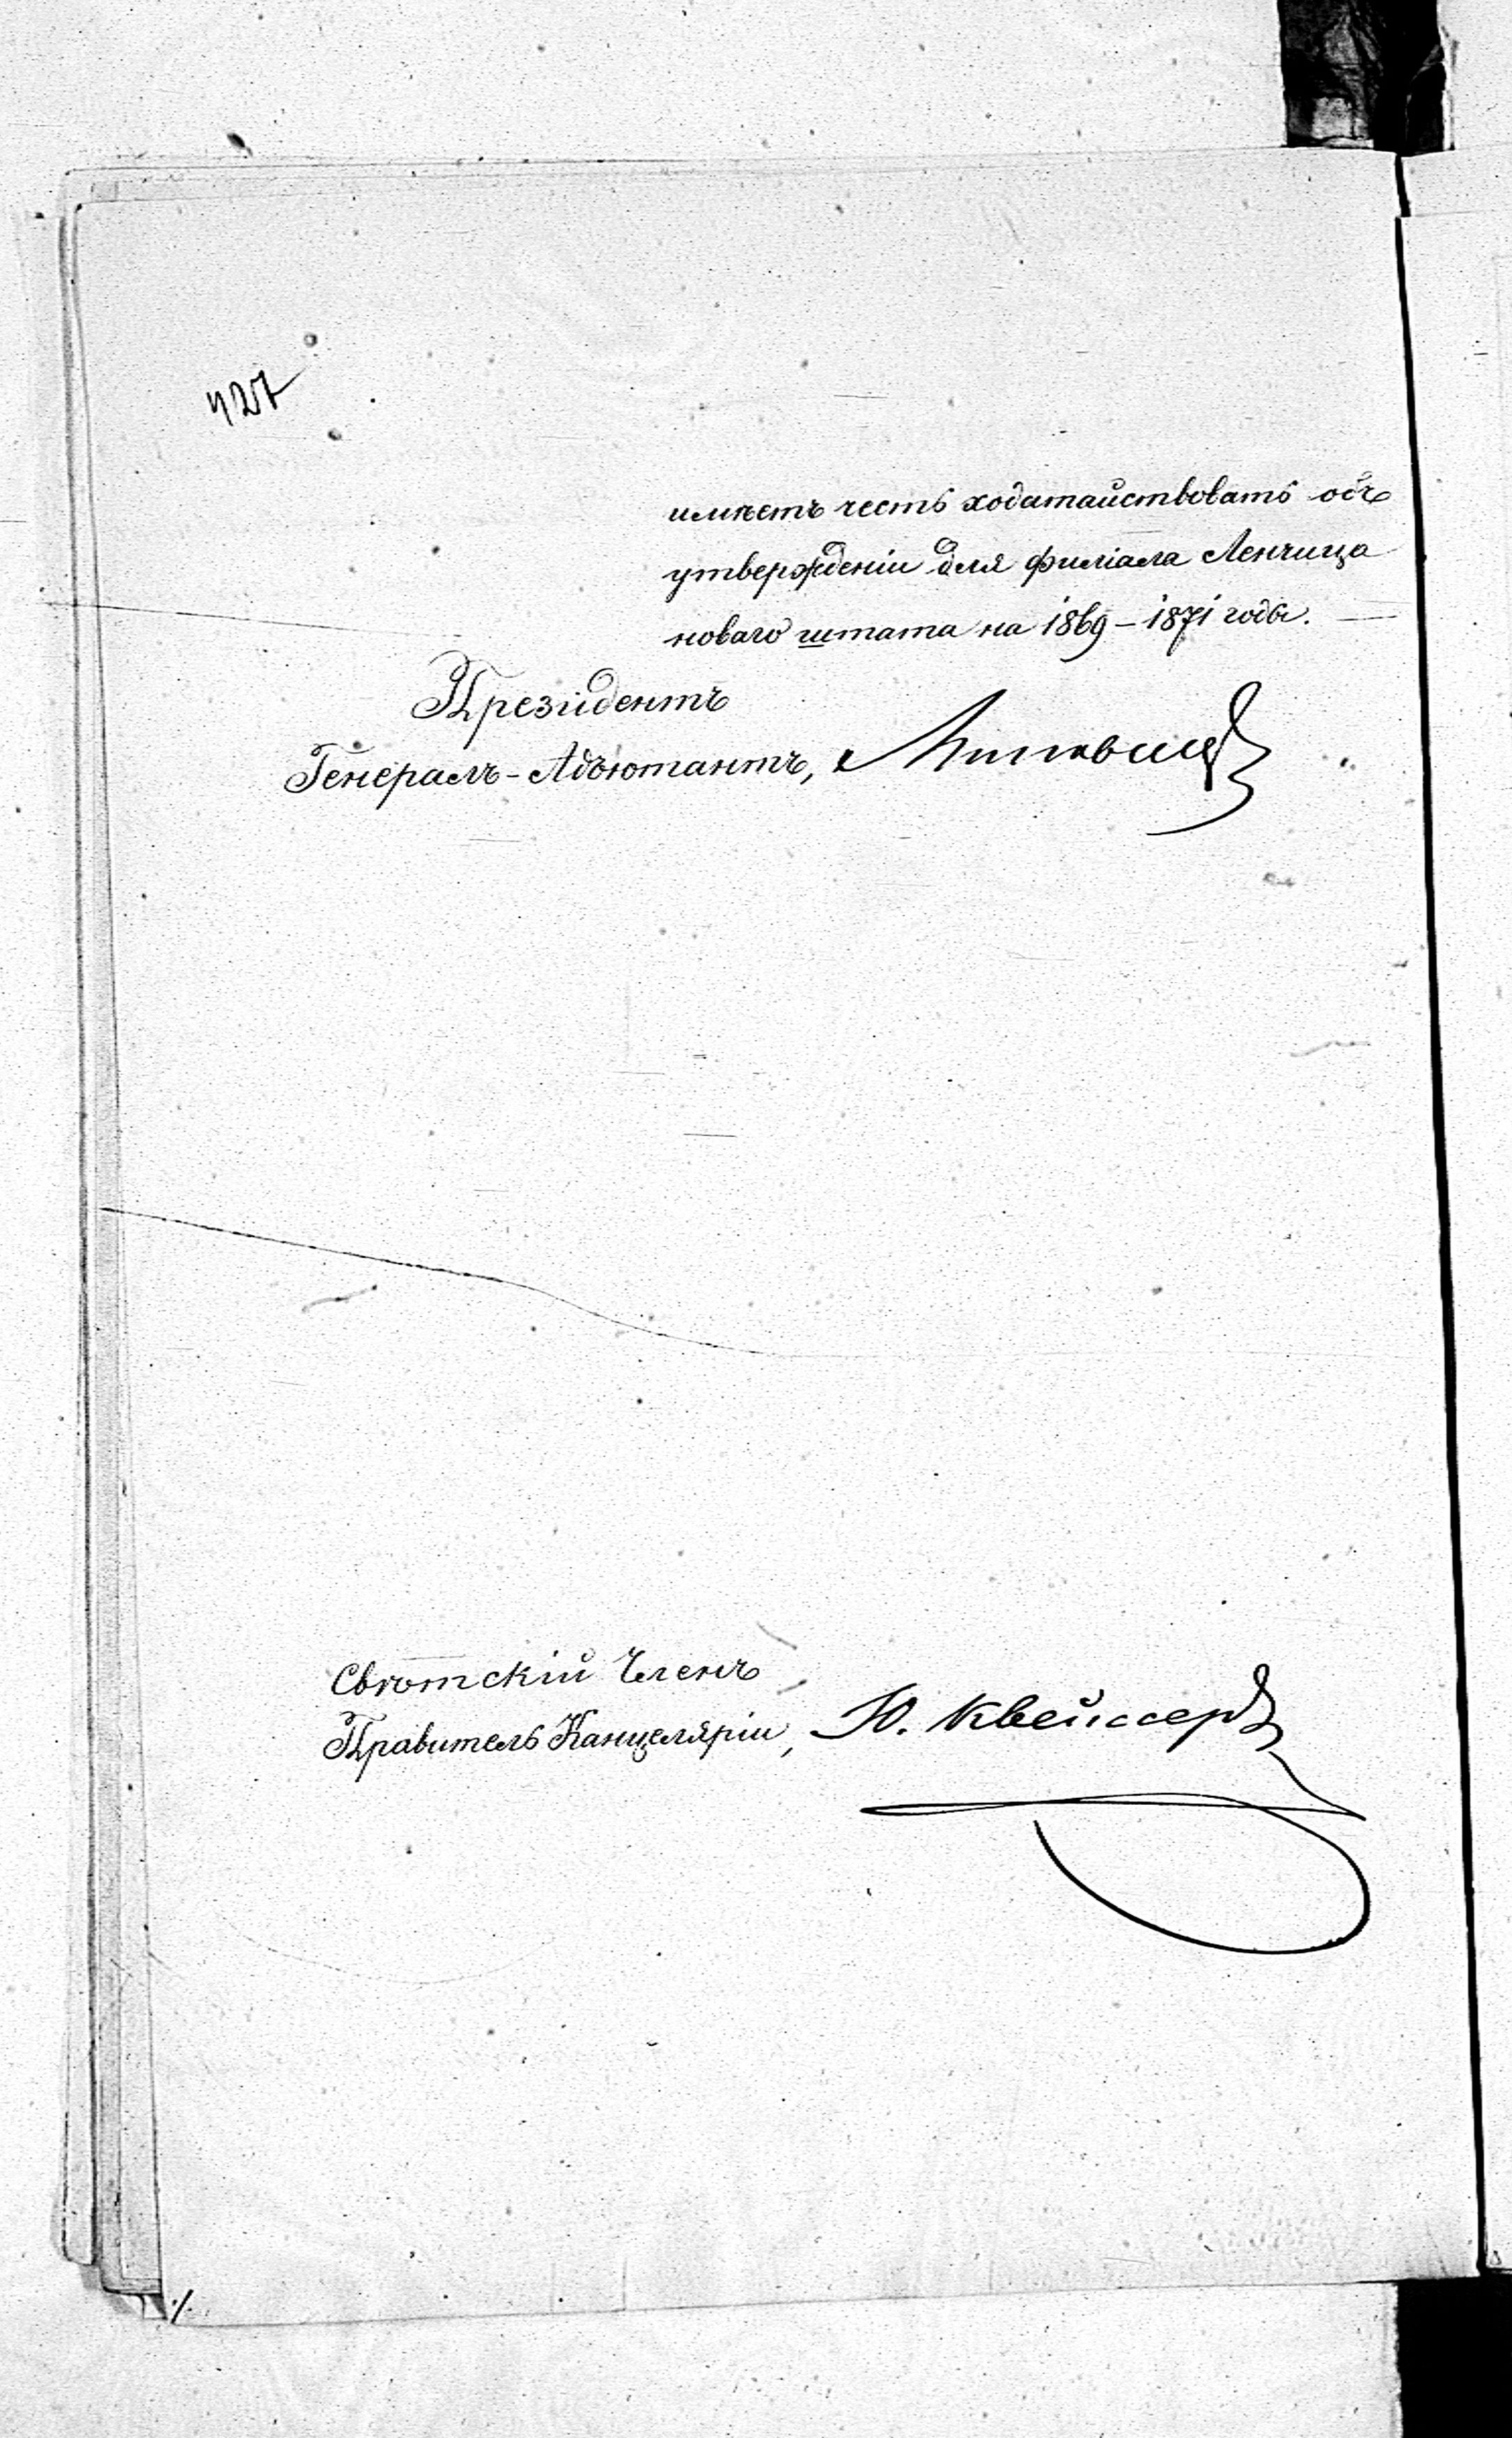 427
имѣетъ честь ходатайствовать объ
утвержденіи для филіала Ленчица
новаго штата на 1869 – 1871 годы. —
Президентъ
Генералъ-Адъютантъ,
Свѣтскій Членъ
Правитель Канцеляріи, Ю. Квейссеръ